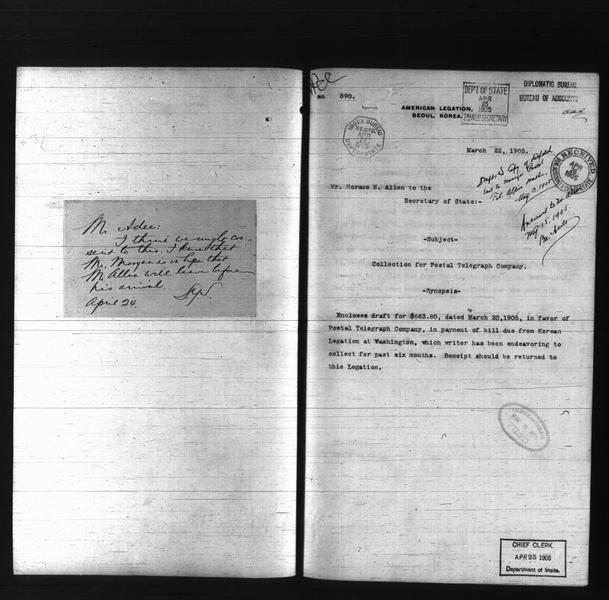 Mr. Adee:
I think we might con-
sent to this. I know that
Mr. Morgan is in hope that
Mr Allen will leave before
his arrival.
April 24.
No. 890.
DEPT OF STATE
APR
25
1905
DIPLOMATIC BUREAU
BUREAU OF ACCOUNTS
AMERICAN LEGATION,
SEOUL, KOREA.
INDEX BUREAU
DEPT. STATE
RECEIVED
March 22, 1905.
May 3, 1905
Mr. Horace N. Allen to the
Secretary of State:-
May 5, 1905.
-Subject-
Collection for Postal Telegraph Company.
-Synopsis-
Encloses draft for $663.80, dated March 20,1905, in favor of
Postal Telegraph Company, in payment of bill due from Korean
Legation at Washington, which writer has been endeavoring to
collect for past six months. Receipt should be returned to
this Legation.
CHIEF CLERK
APR 25 1905
Department of State.